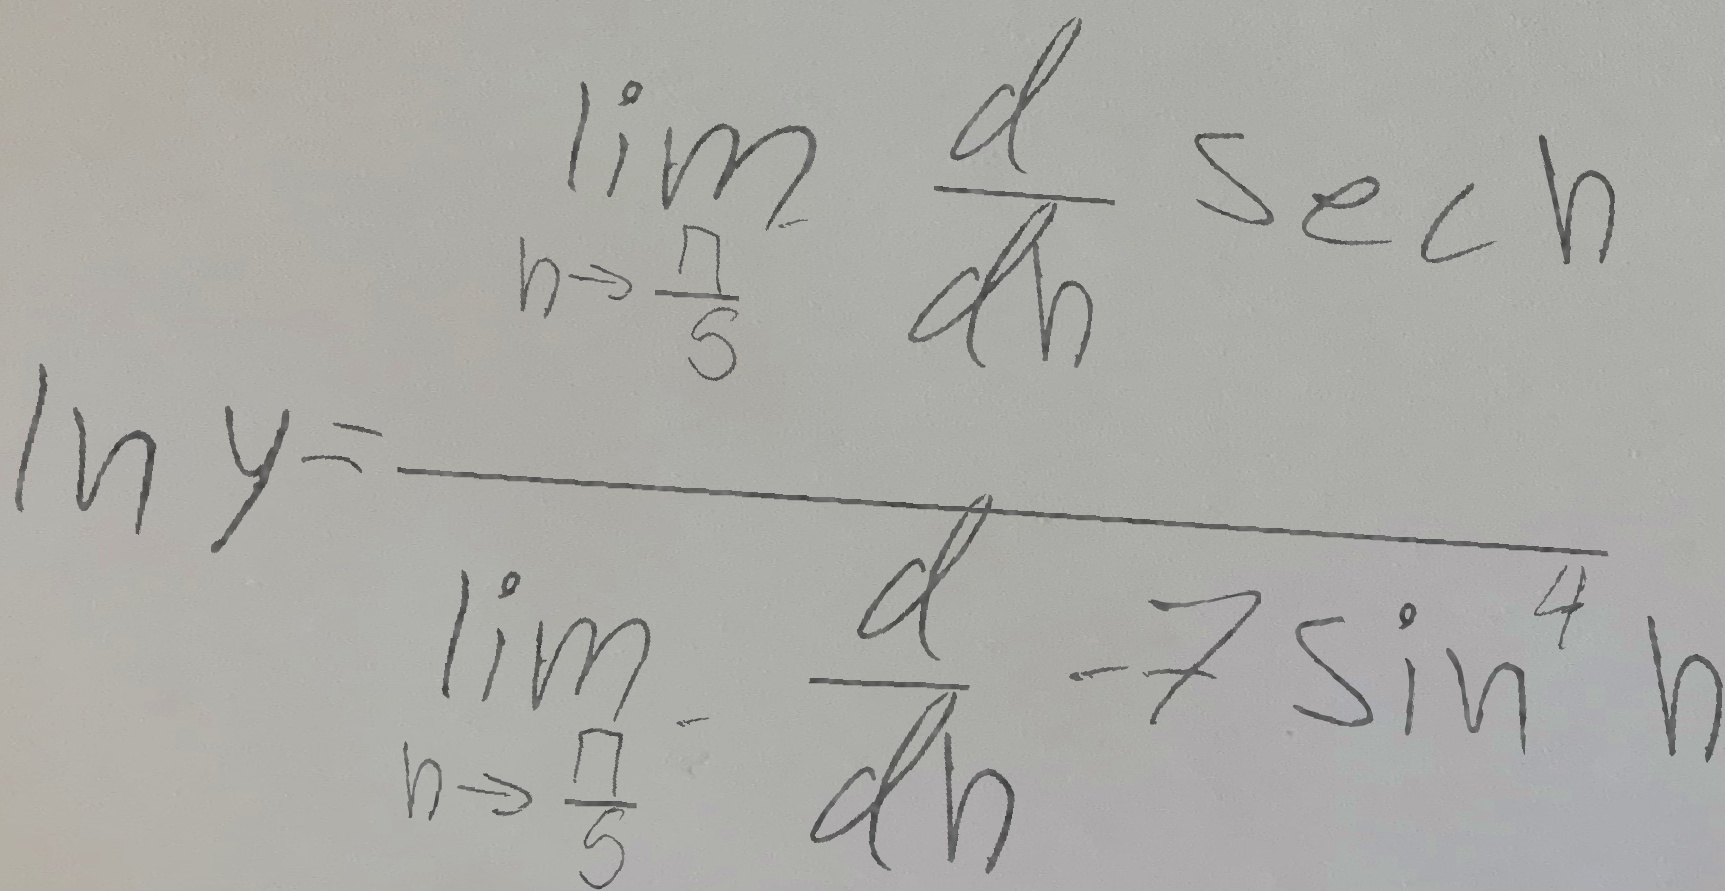 \ln y = \frac{\lim_{h \to \frac{\pi}{5}^-} \frac{d}{dh} \sec h}{\lim_{h \to \frac{\pi}{5}^-} \frac{d}{dh} -7 \sin^4 h}